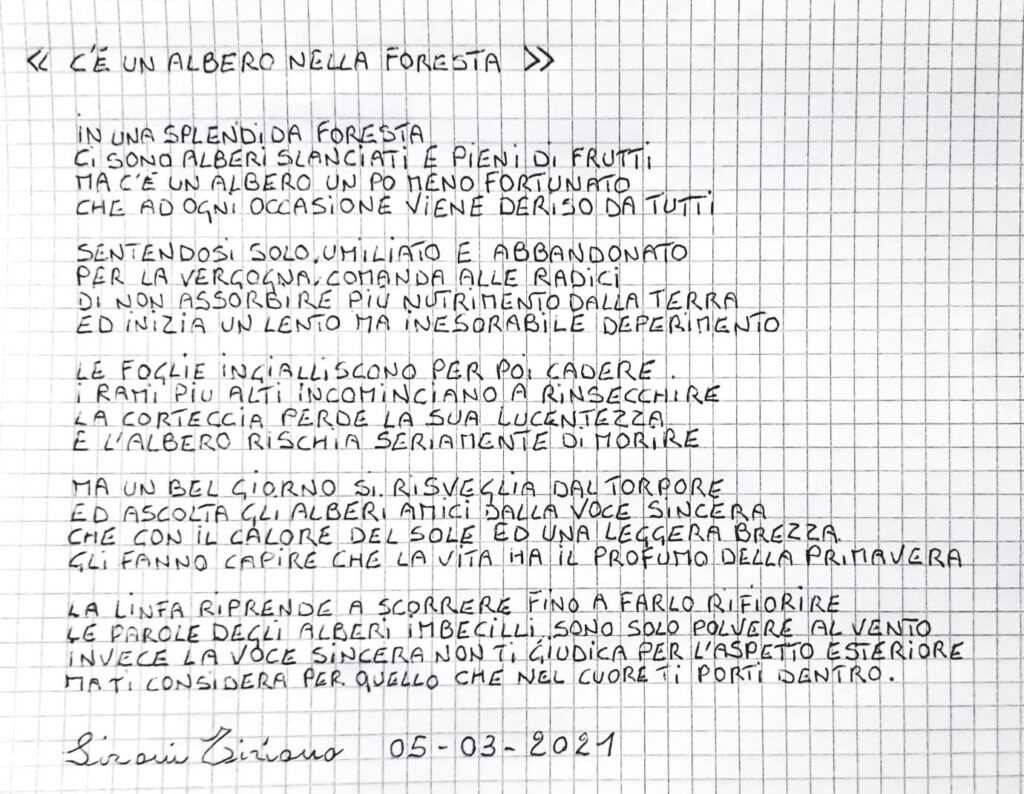 « C'È UN ALBERO NELLA FORESTA »
IN UNA SPLENDIDA FORESTA
CI SONO ALBERI SLANCIATI E PIENI DI FRUTTI
MA C'È UN ALBERO UN PO MENO FORTUNATO
CHE AD OGNI OCCASIONE VIENE DERISO DA TUTTI
SENTENDOSI SOLO, UMILIATO E ABBANDONATO
PER LA VERGOGNA, COMANDA ALLE RADICI
DI NON ASSORBIRE PIÙ NUTRIMENTO DALLA TERRA
ED INIZIA UN LENTO MA INESORABILE DEPERIMENTO
LE FOGLIE INGIALLISCONO PER POI CADERE.
I RAMI PIU ALTI INCOMINCIANO A RINSECCHIRE
LA CORTECCIA PERDE LA SUA LUCENTEZZA
E L'ALBERO RISCHIA SERIAMENTE DI MORIRE
MA UN BEL GIORNO SI RISVEGLIA DAL TORPORE
ED ASCOLTA GLI ALBERI AMICI DALLA VOCE SINCERA
CHE CON IL CALORE DEL SOLE ED UNA LEGGERA BREZZA
GLI FANNO CAPIRE CHE LA VITA HA IL PROFUMO DELLA PRIMAVERA
LA LINFA RIPRENDE A SCORRERE FINO A FARLO RIFIORIRE
LE PAROLE DEGLI ALBERI IMBECILLI SONO SOLO POLVERE AL VENTO
INVECE LA VOCE SINCERA NON TI GIUDICA PER L'ASPETTO ESTERIORE
MA TI CONSIDERA PER QUELLO CHE NEL CUORE TI PORTI DENTRO.
Tiziano 05-03-2021